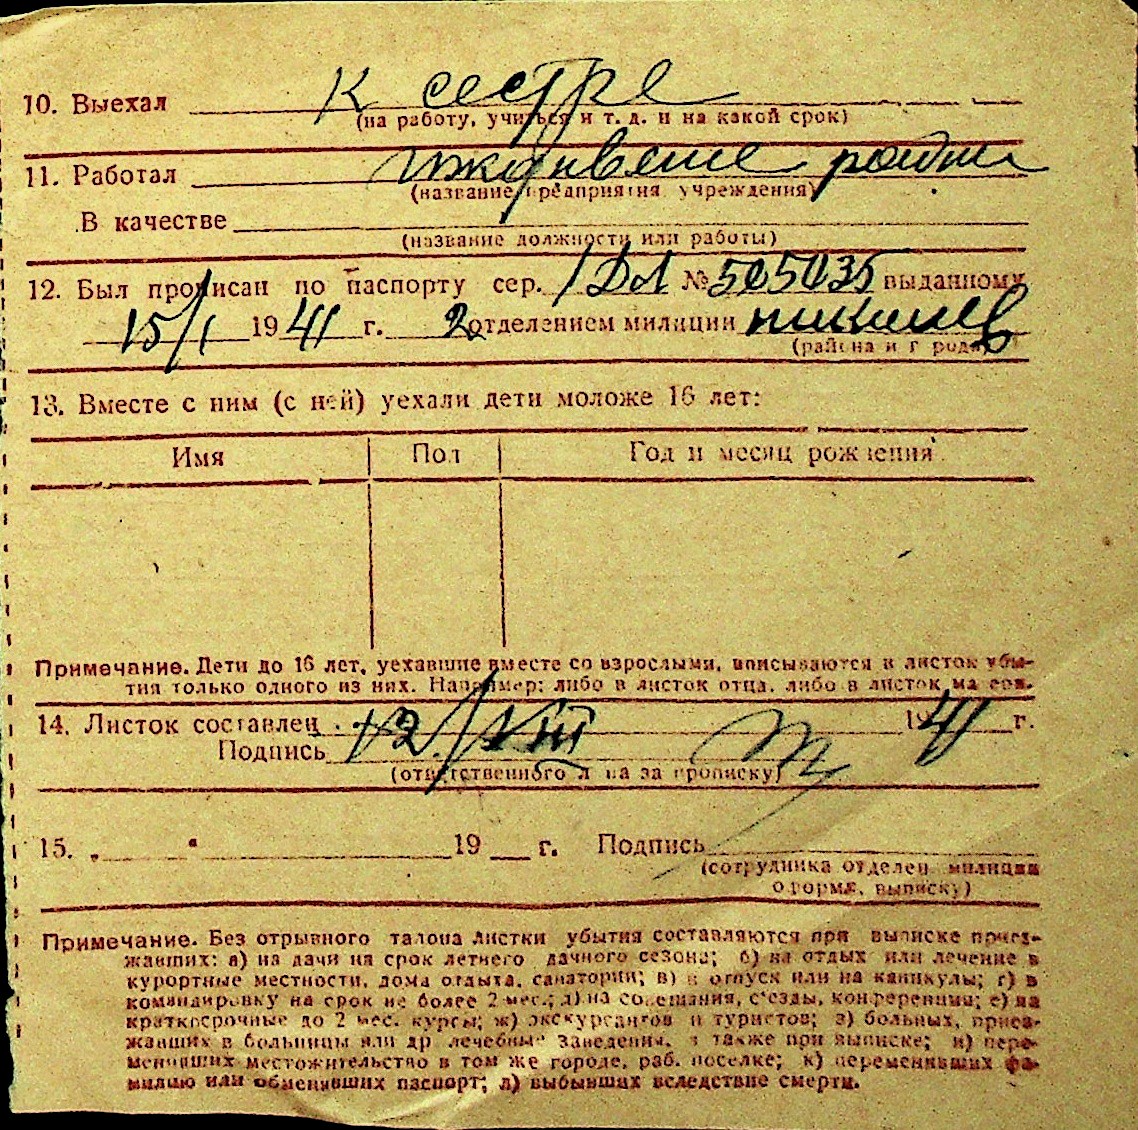 10. Выехал к сестре
(на работу, учиться и т. д. и на какой срок)
11. Работал иждивение родни
(название предприятия учреждения)
В качестве
(название должности или работы)
12. Был прописан по паспорту сер. IДЛ № 505035 выданному
15/I 1941 г. 2 отделением милиции
(района и города)
13. Вместе с ним (с ней) уехали дети моложе 16 лет:
Имя Пол Год и месяц рождения
Примечание. Дети до 16 лет, уехавшие вместе со взрослыми, вписываются в листок убы-
тия только одного из них. Например: либо в листок отца, либо в листок матери.
14. Листок составлен 12/VIII 1941 г.
Подпись
(ответственного лица за прописку)
15. „ " 19 г. Подпись
(сотрудника отделен. милиции
оформл. выписку)
Примечание. Без отрывного талона листки убытия составляются при выписке приез-
жавших: а) на дачи на срок летнего дачного сезона; б) на отдых или лечение в
курортные местности, дома отдыха, санатории; в) в отпуск или на каникулы; г) в
командировку на срок не более 2 мес.; д) на совещания, с'езды, конференции; е) на
краткосрочные до 2 мес. курсы; ж) экскурсантов и туристов; з) больных, приез-
жавших в больницы или др лечебные заведения, а также при выписке; и) пере-
менивших местожительство в том же городе, раб. поселке; к) переменивших фа-
милию или обменивших паспорт; л) выбывших вследствие смерти.